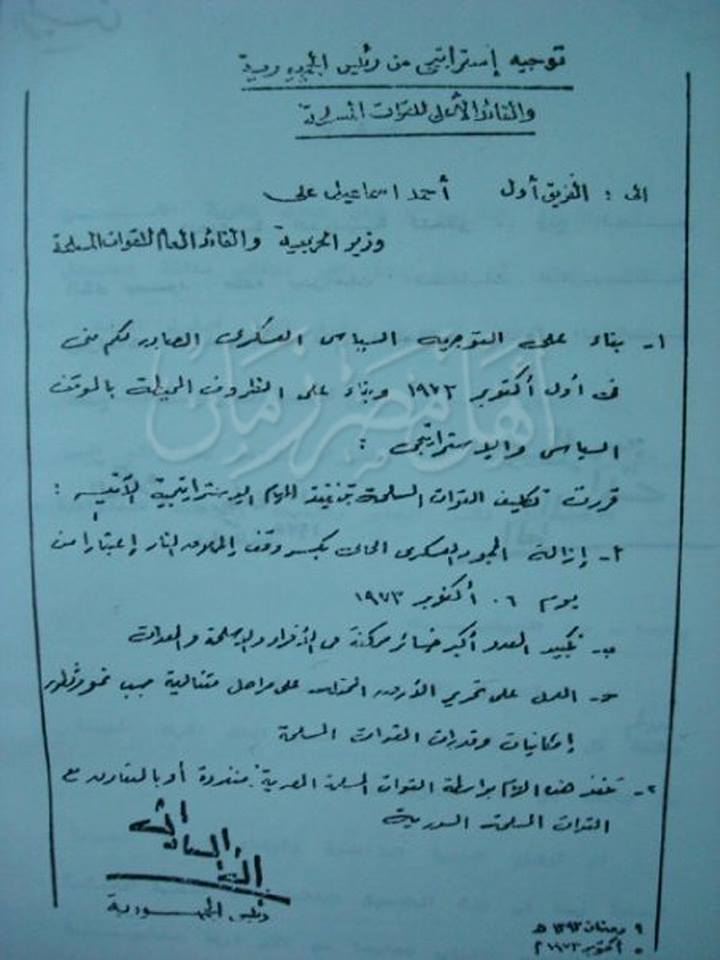 توجيه إستراتيجى من رئيس الجمهورية
والقائد الأعلى للقوات المسلحة
الى : الفريق أول أحمد اسماعيل على
وزير الحربية والقائد العام للقوات المسلحة
١- بناء على التوجيه السياسى العسكرى الصادر لكم منى
فى أول أكتوبر ١٩٧٣ وبناء على الظروف المحيطة بالموقف
السياسى والإستراتيجى :
قررت تكليف القوات المسلحة بتنفيذ المهام الإستراتيجية الآتية :
أ- إزالة الجمود العسكرى الحالى بكسر وقف إطلاق النار إعتبارا من
يوم ٠٦ أكتوبر ١٩٧٣
ب- تكبيد العدو أكبر خسائر ممكنة من الأفراد والإسلحة والمعدات
ح- العمل على تحرير الأرض المحتلة على مراحل متتالية حسب نمو وتطور
إمكانيات وقدرات القوات المسلحة
٢- تنفذ هذه المهام بواسطة القوات المسلحة المصرية منفردة أو بالتعاون مع
القوات المسلحة السورية
أنور السادات
رئيس الجمهورية
٩ رمضان ١٣٩٣ هـ
٥ أكتوبر ١٩٧٣ م
أهل مصر زمان